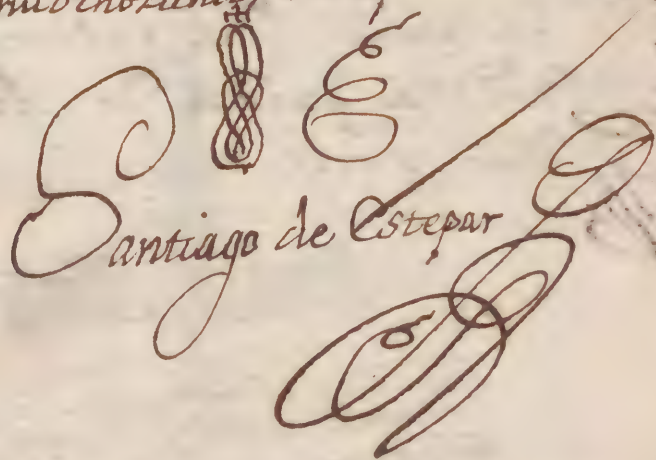 Santiago de Estepar